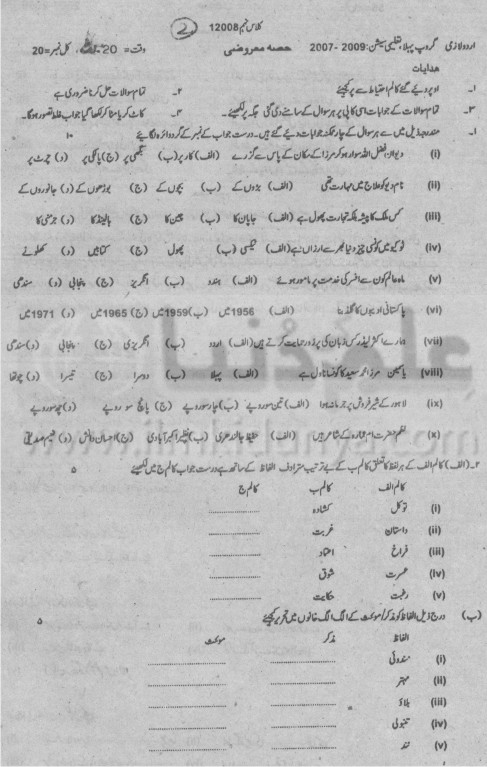 کلاس نمبر 12008
اردو لازمی گروپ پہلا، تعلیمی سیشن: 2009-2007 حصہ معروضی وقت= 20 کل نمبر=20
ہدایات
۱۔ اوپر دیے گئے کالم احتیاط سے پر کیجئے ۲۔ تمام سوالات حل کرنا ضروری ہے
۳۔ تمام سوالات کے جوابات اسی کاپی پر ہر سوال کے سامنے دی گئی جگہ پر لکھیئے۔ ۴۔ کاٹ کر یا مٹا کر لکھا گیا جواب غلط تصور ہوگا۔
۱۔ مندرجہ ذیل میں سے ہر سوال کے چار ممکنہ جوابات دیے گئے ہیں۔ درست جواب کے نمبر کے گرد دائرہ لگائیے ۱۰
(i) دیوان فضل اللہ سوار ہو کر مرزا کے مکان کے پاس سے گزرے (الف) کار پر (ب) بگھی پر (ج) پالکی پر (د)
(ii) نام دیو کو علاج میں مہارت تھی (الف) بڑوں کے (ب) بچوں کے (ج) بوڑھوں کے (د) جانوروں کے
(iii) کس ملک کا پیشہ بلکہ تجارت پھول ہے (الف) جاپان کا (ب) چین کا (ج) ہالینڈ کا (د) جرمنی کا
(iv) ٹوکیو میں کونسی چیز دنیا بھر سے ارزاں ہے (الف) ٹیکسی (ب) پھول (ج) کتابیں (د) کھلونے
(v) ماہ عالم کون سے افسر کی خدمت پر مامور ہوئے (الف) ہندو (ب) انگریز (ج) پنجابی (د) سندھی
(vi) پاکستانی ادیبوں کا (الف) 1956 میں (ب) 1959 میں (ج) 1965 میں (د) 1971 میں
(vii) ہمارے اکثر لیڈر کس زبان کی پرزور حمایت کرتے ہیں (الف) اردو (ب) انگریزی (ج) پنجابی (د) سندھی
(viii) یاسمین مرزا محمد سعید کا کونسا ناول ہے (الف) پہلا (ب) دوسرا (ج) تیسرا (د) چوتھا
(ix) لاہور کے شیر فروش پر جرمانہ ہوا (الف) تین سو روپے (ب) چار سو روپے (ج) پانچ سو روپے (د) چھ سو روپے
(x) نظم حضرت ام عمارہ کے شاعر ہیں (الف) حفیظ جالندھری (ب) نظیر اکبر آبادی (ج) احسان دانش (د) نعیم صدیقی
۲۔ (الف) کالم الف کے ہر لفظ کا تعلق کالم ب کے بے ترتیب مترادف الفاظ کے ساتھ ہے درست جواب کالم ج میں لکھیئے ۵
کالم الف کالم ب کالم ج
(i) توکل کشادہ
(ii) داستان غربت
(iii) فراغ اعتماد
(iv) عسرت شوق
(v) رغبت حکایت
(ب) درج ذیل الفاظ کو مذکر/مونث کے الگ الگ خانوں میں تحریر کیجئے ۵
الفاظ مذکر مونث
(i)
(ii) مہتر
(iii) بلاؤ
(iv) تنبولی
(v) نند
www.ilmkidunya.com
علم کی دنیا